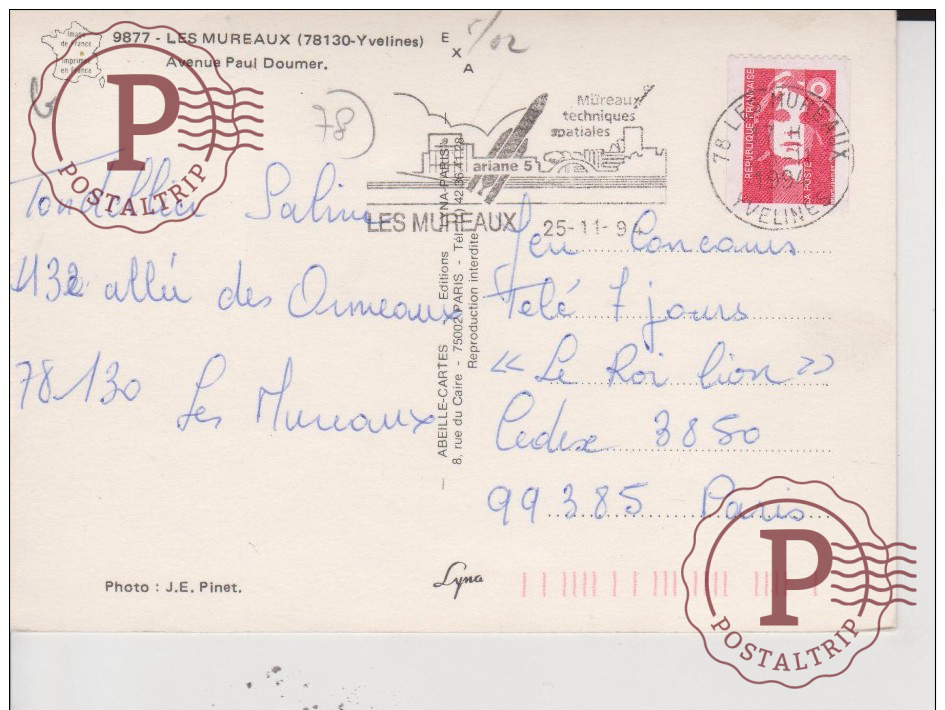 image
de France
imprimé
en France
9877 - LES MUREAUX (78130-Yvelines)
Avenue Paul Doumer.
E
X
A
5/02
78
P
POSTALTRIP
Mureaux
techniques
spatiales
ariane 5
LES MUREAUX 25-11-94
RÉPUBLIQUE FRANÇAISE
LA POSTE
78 LES MUREAUX
1994
YVELINES
Sabine
132 allée des Ormeaux
78130 Les Mureaux
ABEILLE-CARTES - Editions LYNA-PARIS
8, rue du Caire - 75002 PARIS - Tél. (1) 42.36.41.28
Reproduction interdite
Jeu Concours
Télé 7 jours
<< Le Roi lion >>
Cedex 3850
99385 Paris
Photo : J.E. Pinet.
Lyna
P
POSTALTRIP